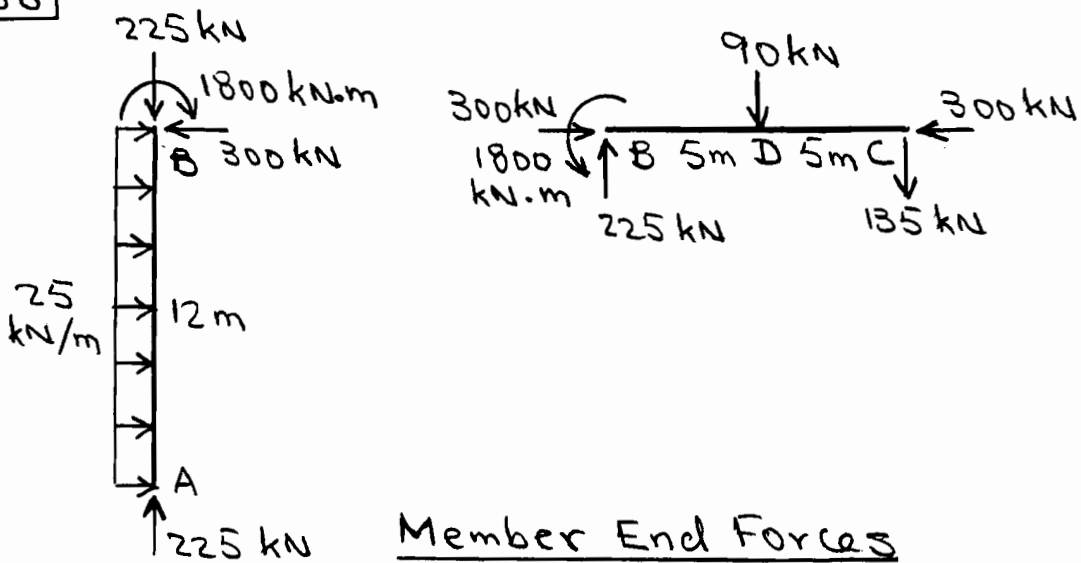 225 kN
1800 kN.m
B
300 kN
25
kN/m
12 m
A
225 kN
90 kN
300 kN
1800
kN.m
B 5m D 5m C
300 kN
225 kN
135 kN
Member End Forces